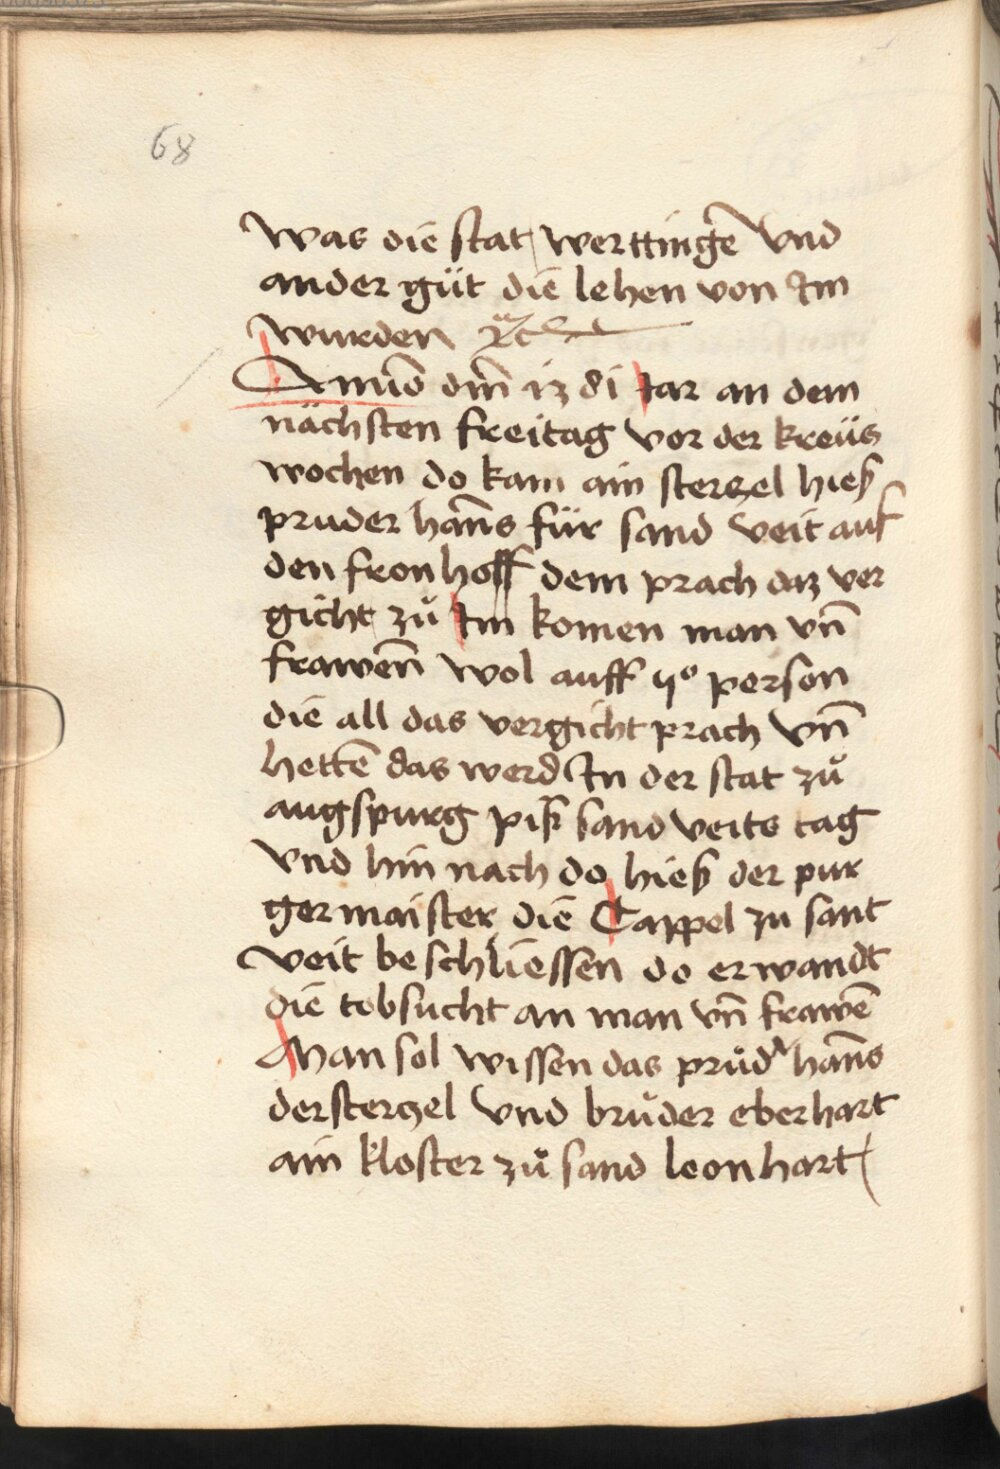 68
was die stat werttingē vnd
ander güt die lehen von Im
wurden ꝛc
Anno dm̄ iz di Iar an dem
nächsten freitag vor der kreüs
wochen do kam ain sterzel hieß
pruder hanns für sand veit auf
den fronhoff dem prach daz ver
gicht zů Im komen man vn̄
frawen̄ wol auff ijº person
die all das vergicht prach vn̄
hettē das werd In der stat zů
augspurg piß sand veits tag
vnd hin nach do hieß der pur
germaister die Cappel zu sant
veit beschliessen do erwandt
die tobsucht an man vn̄ frawē
Man sol wissen das průdˀ han̄s
der sterzel vnd brůder eberhart
ain kloster zů sand leonhart